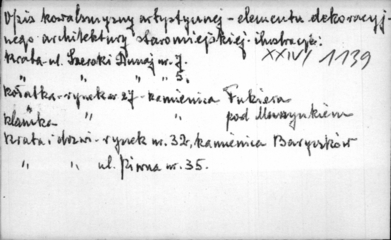 Opis kowalszczyzny artystycznej - elementu dekoracyj-
nego architektury staromiejskiej - ilustracje:
Krata - ul. Szeroki Dunaj nr. 7.
" " " " 5.
XXIV/1139
Kołatka - rynek nr 27 - kamienica Fukiera
klamka " " " pod Murzynkiem
Krata i drzwi - rynek nr. 32, kamienica Baryczków
" " ul. Piwna nr. 35.